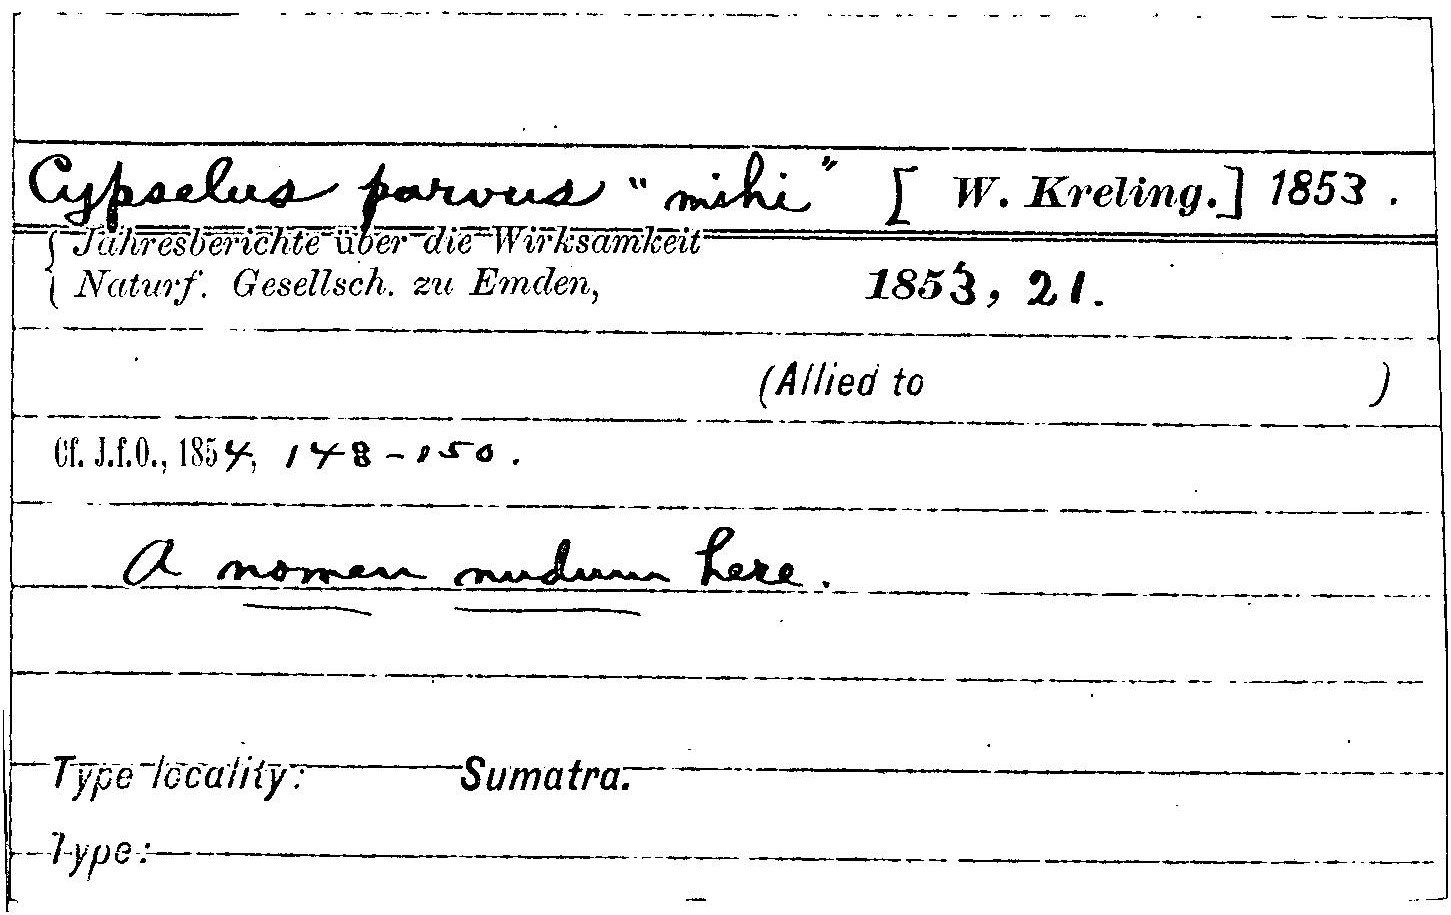 Cypselus parvus "mihi" [ W. Kreling.] 1853.
Jahresberichte über die Wirksamkeit
Naturf. Gesellsch. zu Emden, 1853, 21.
(Allied to )
Cf. J.f.O., 1854, 148-150.
A nomen nudum here.
Type locality: Sumatra.
Type: